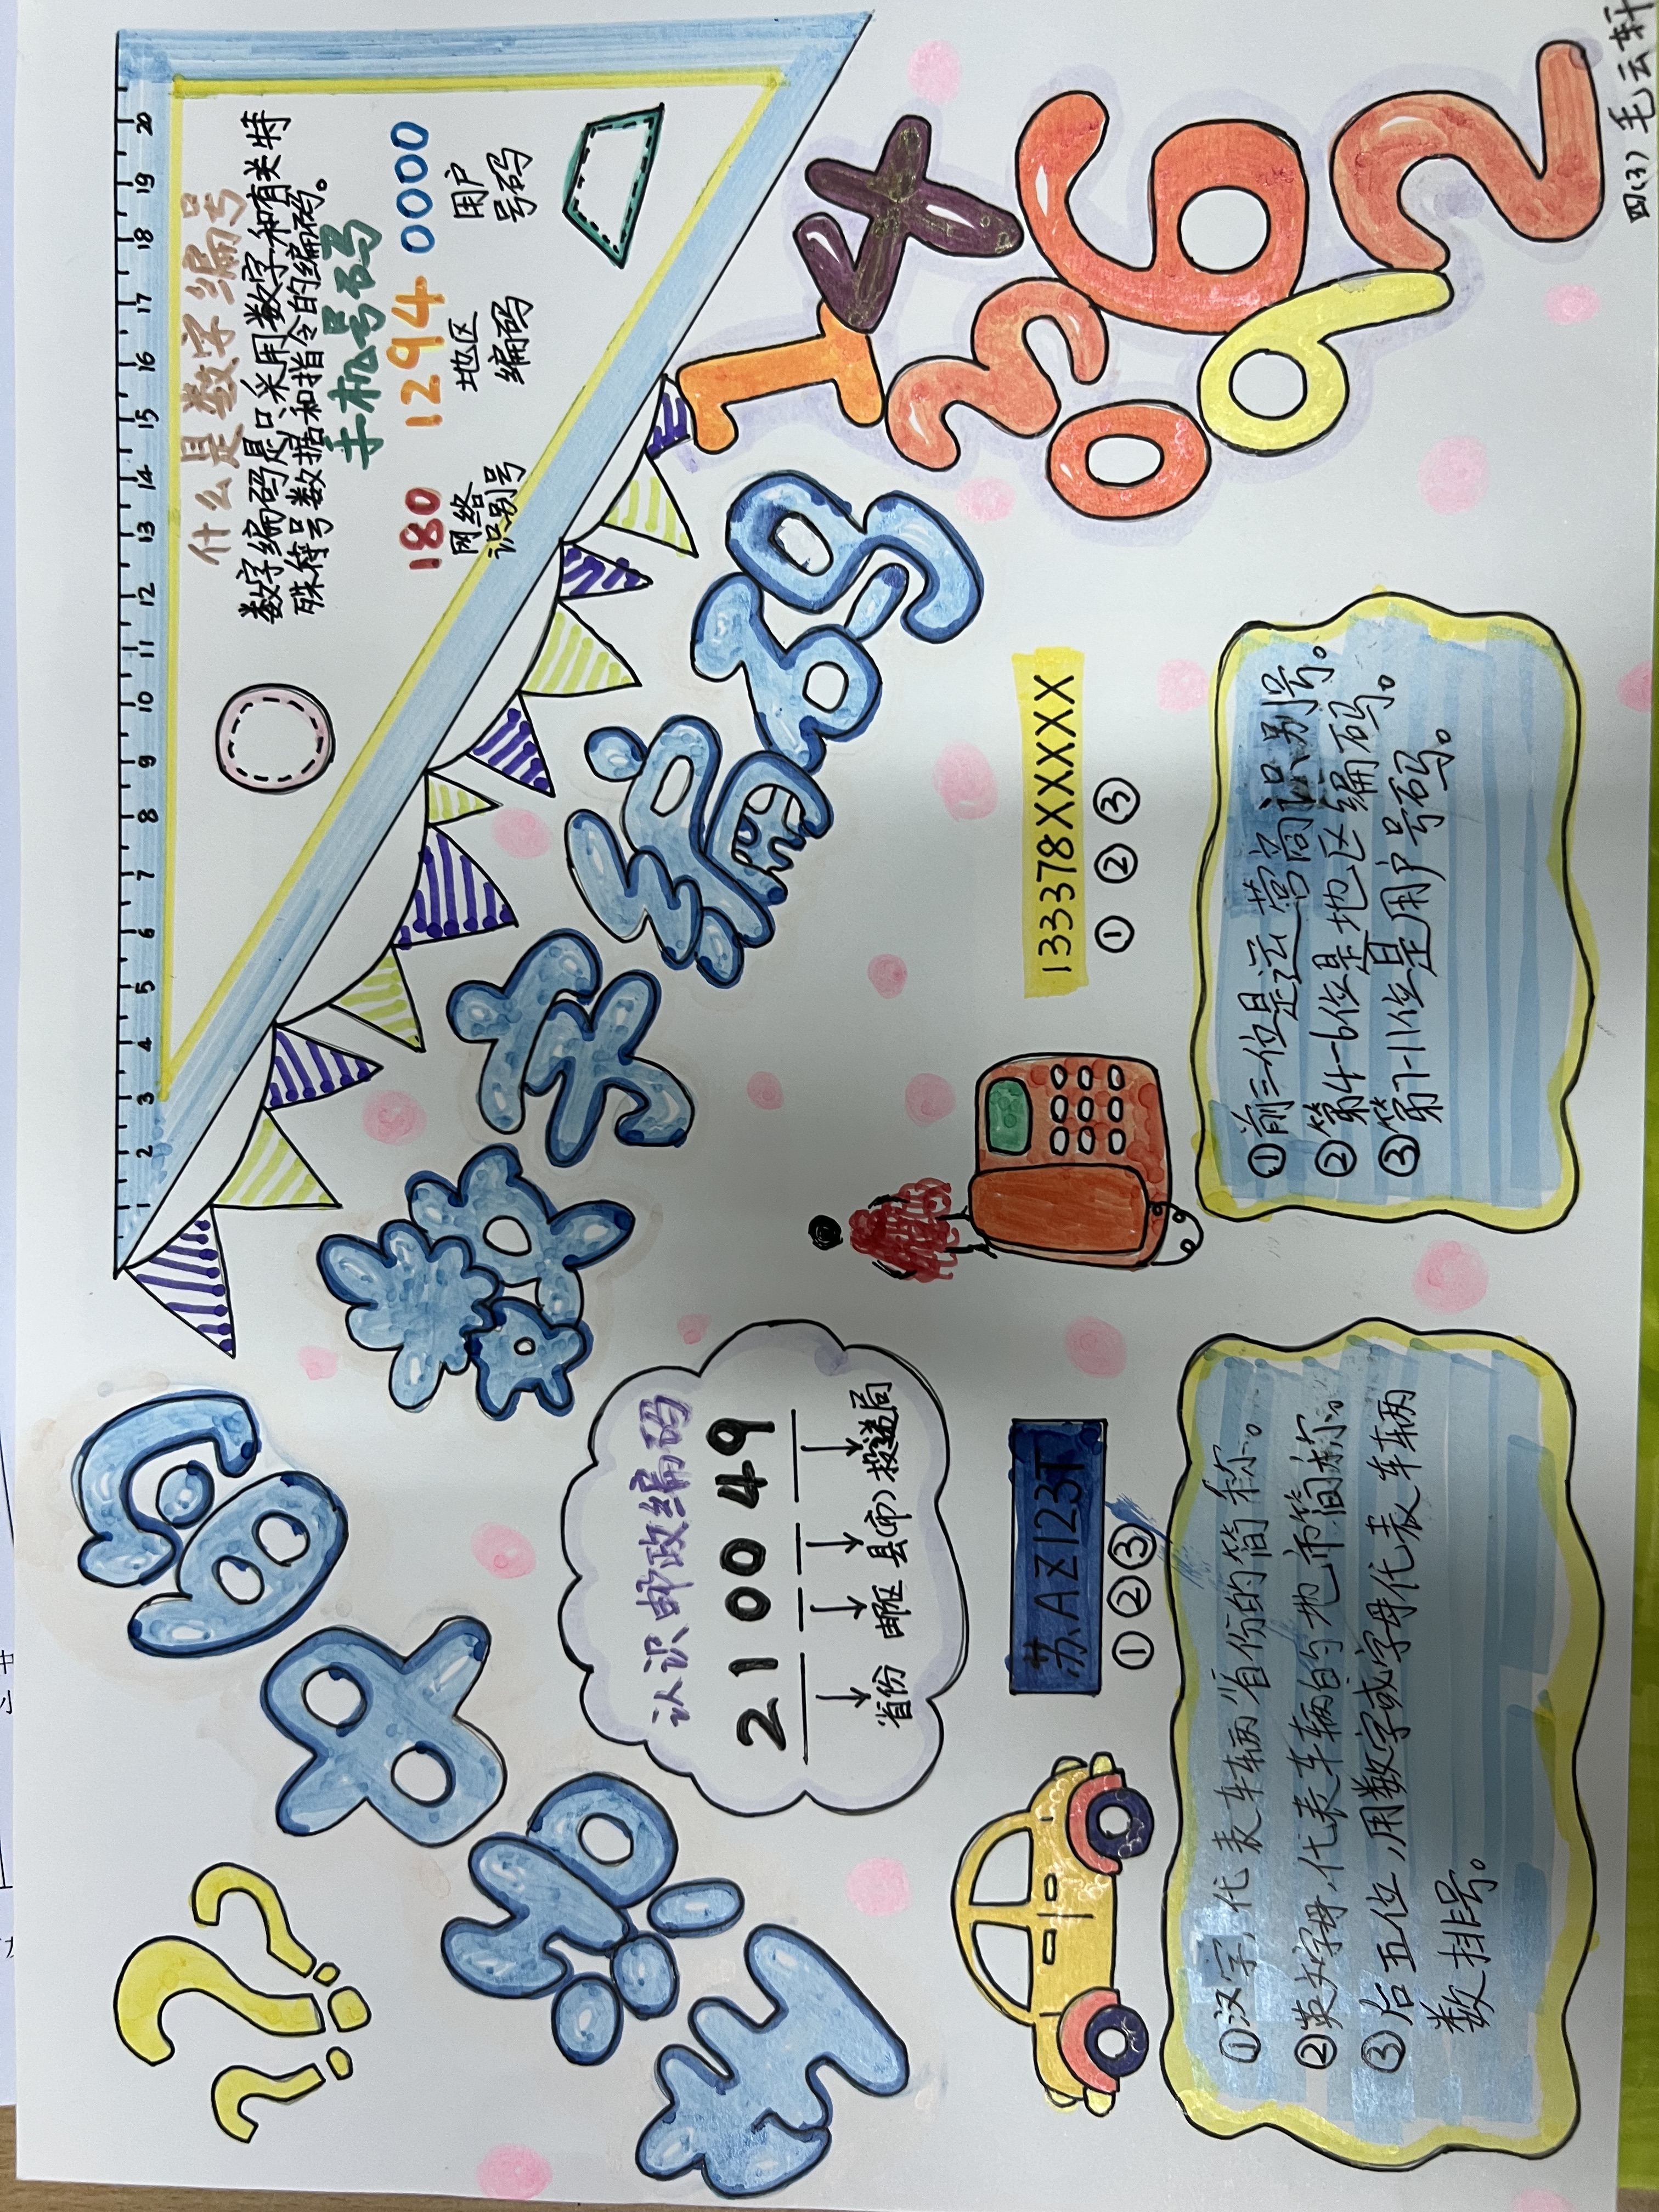 生活中的数字编码
1 2 3 4 5 6 7 8 9 10 11 12 13 14 15 16 17 18 19 20
什么是数字编号
数字编码是只采用数字和有关特
殊符号数据和指令的编码。
手机号码
180 1294 0000
网络 地区 用户
识别号 编码 号码
认识邮政编码
21 0 0 49
省份 邮区 县(市) 投送局
苏.AZ123T
① ② ③
①汉字,代表车辆省份的简称。
②英文字母,代表车辆的地市简称。
③后五位,用数字或字母代表车辆
数排号。
133378XXXXX
① ② ③
①前三位是运营商识别号。
②第4-6位是地区编码。
③第7-11位是用户号码。
1 4
3 9
0 6 2
四(3) 毛云轩